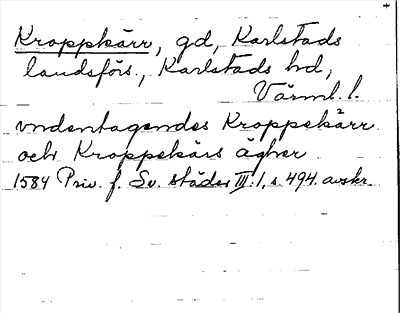 Kroppkärr, gd, Karlstads
landsförs., Karlstads hd,
Värml. l.
vndentagendes Kroppekärr
och Kroppekärs ägher
1584 Priv. f. Sv. städer III:1, s. 494. avskr.